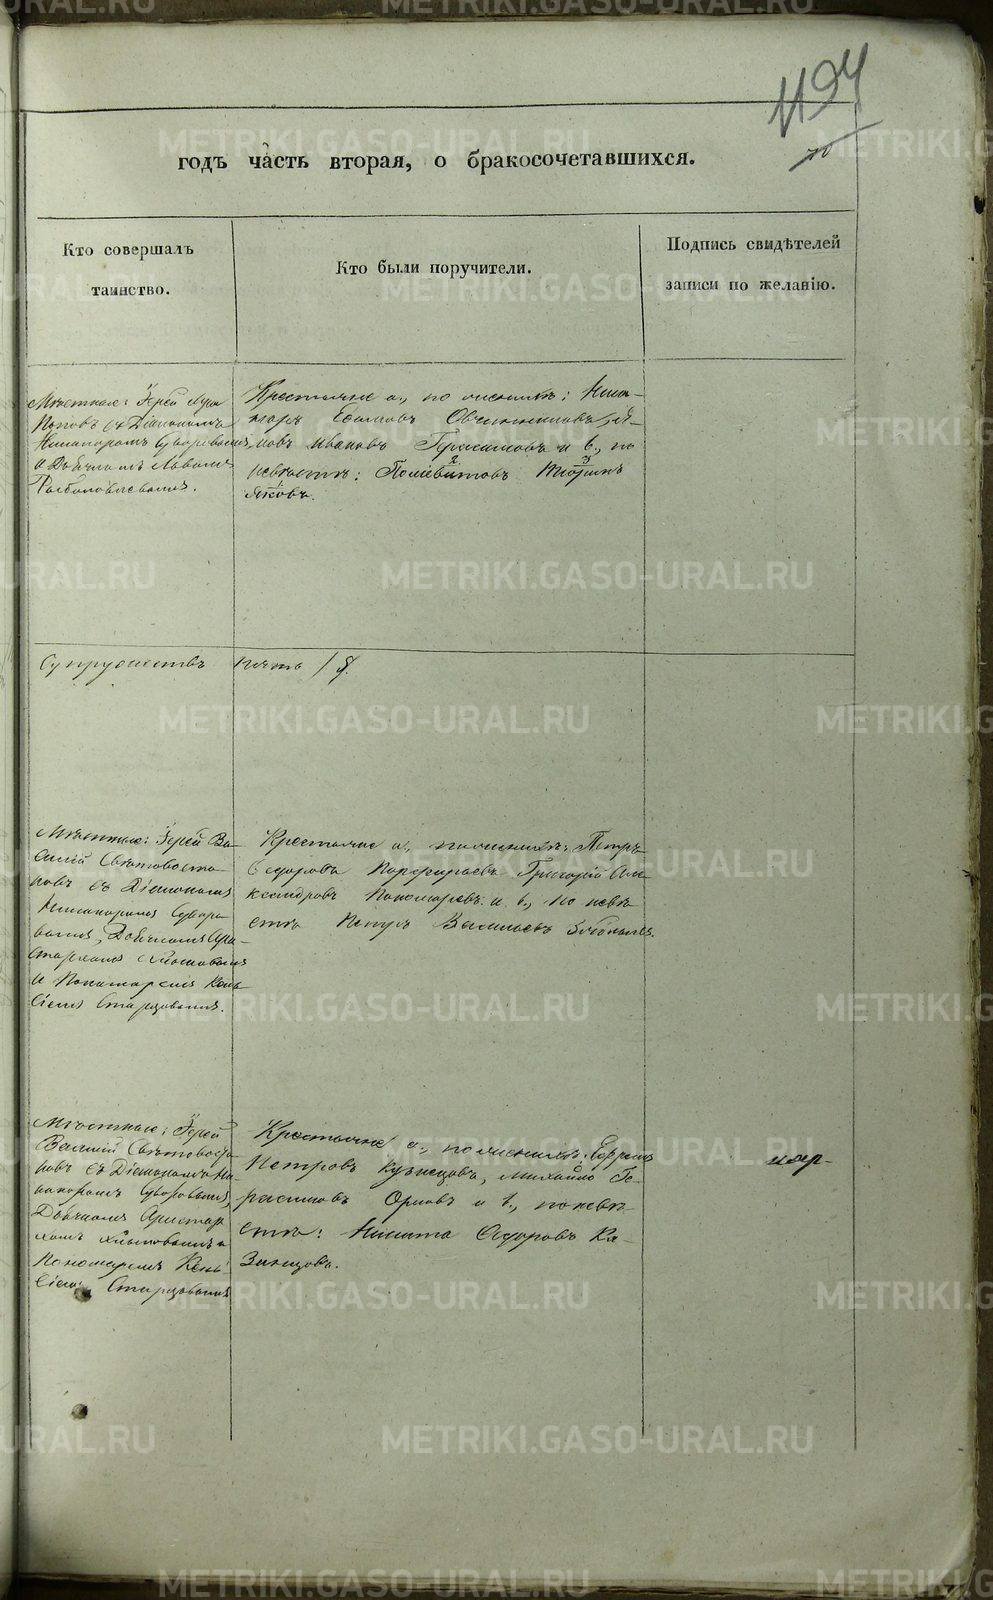 1194
70
годъ часть вторая, о бракосочетавшихся.
Кто совершалъ
таинство.
Кто были поручители.
Подпись свидѣтелей
записи по желанію.
Мѣстные: Іерей
Поповъ съ Діакономъ
Никаноромъ Суворовымъ
и Дьячкомъ Львомъ
Рыболовлевымъ.
Крестьяне а., по женихѣ: Ника-
норъ Овчинниковъ, Я-
ковъ Ивановъ Герасимовъ и в., по
невѣстѣ:
Яковъ.
Супружествъ пять /5/.
Мѣстные: Іерей Ва-
силій Свѣтовоста-
ковъ съ Діакономъ
Никаноромъ Суворо-
вымъ, Дьячкомъ Ари-
стархомъ
и Пономаремъ Кась-
сіемъ Старцовымъ.
Крестьяне а., по женихѣ: Петръ
Сидоровъ Григорій Але-
ксандровъ Пономаревъ и в., по невѣ-
стѣ Петръ Васильевъ
Мѣстные: Іерей
Василій Свѣтовоста-
ковъ съ Діакономъ Ни-
каноромъ Суворовымъ,
Дьячкомъ Аристар-
хомъ и
Пономаремъ
Старцовымъ
Крестьяне а., по женихѣ: Ефремъ
Петровъ Кузнецовъ, Михайло Ге-
расимовъ Орловъ и в., по невѣ-
стѣ: Никита Сидоровъ Ка-
занцовъ.
METRIKI.GASO-URAL.RU